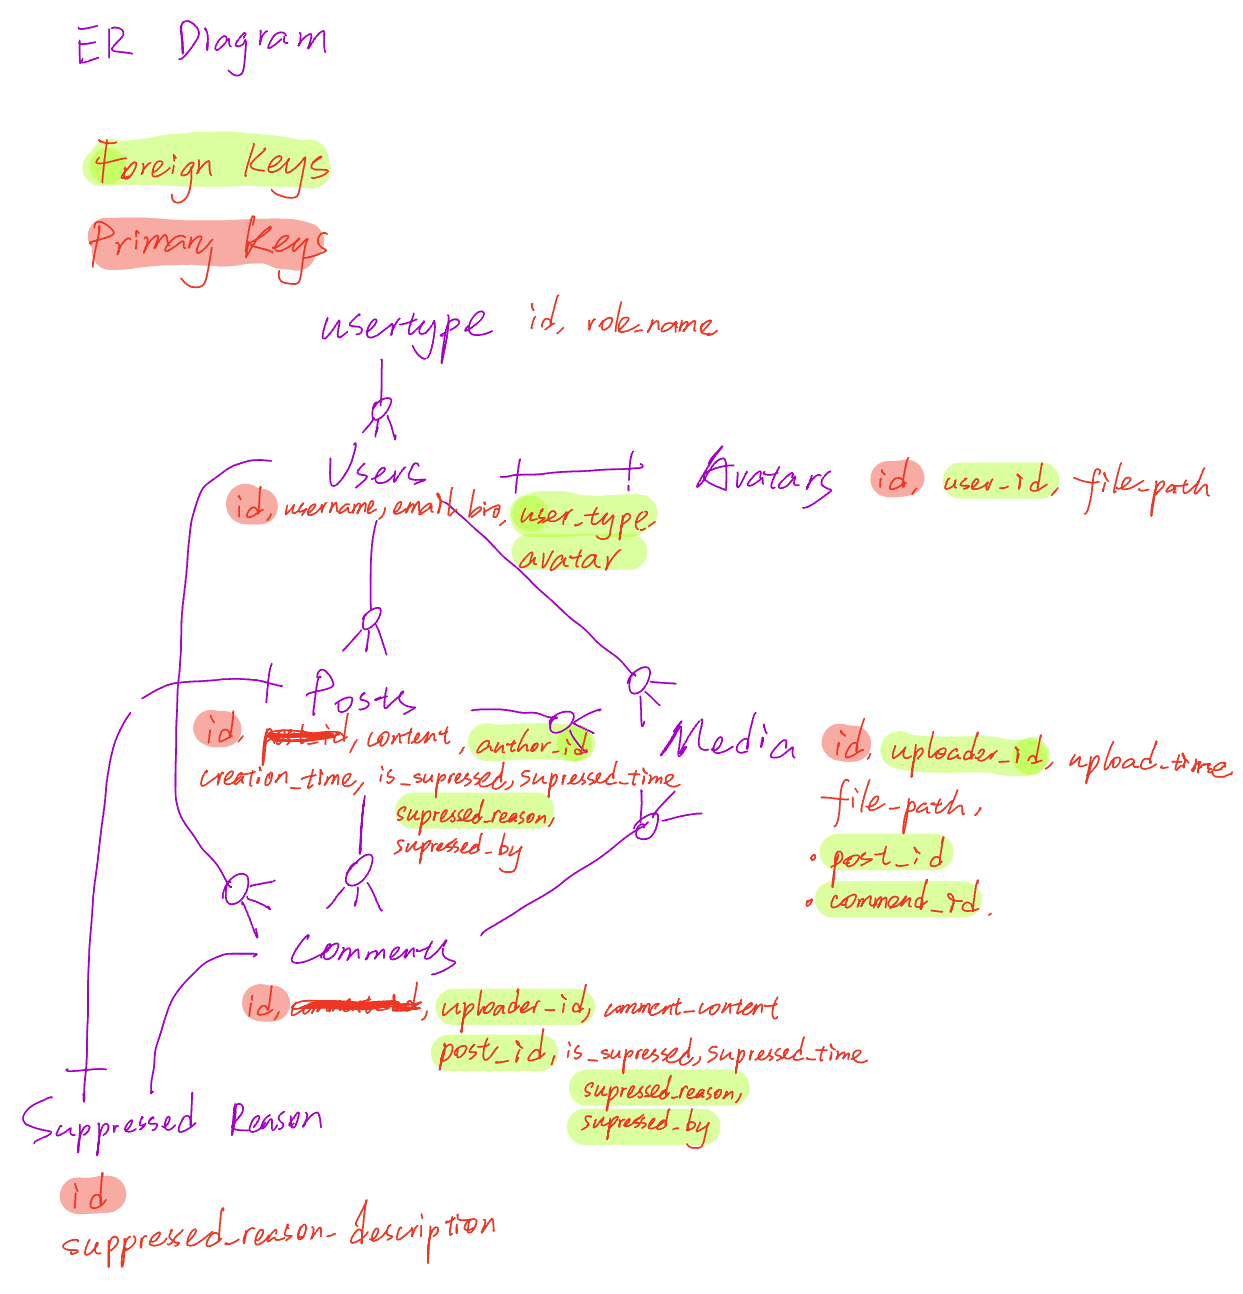 ER Diagram
Foreign Keys
Primary Keys
usertype id, role_name
Users
id, username, email, bio, user_type,
avatar
Avatars id, user_id, file_path
Posts
id, content, author_id
creation_time, is_supressed, supressed_time
supressed_reason,
supressed_by
Media id, uploader_id, upload_time
file_path,
• post_id
• command_id.
Comments
id, uploader_id, comment_content
post_id, is_supressed, supressed_time
supressed_reason,
supressed_by
Suppressed Reason
id
suppressed_reason_description